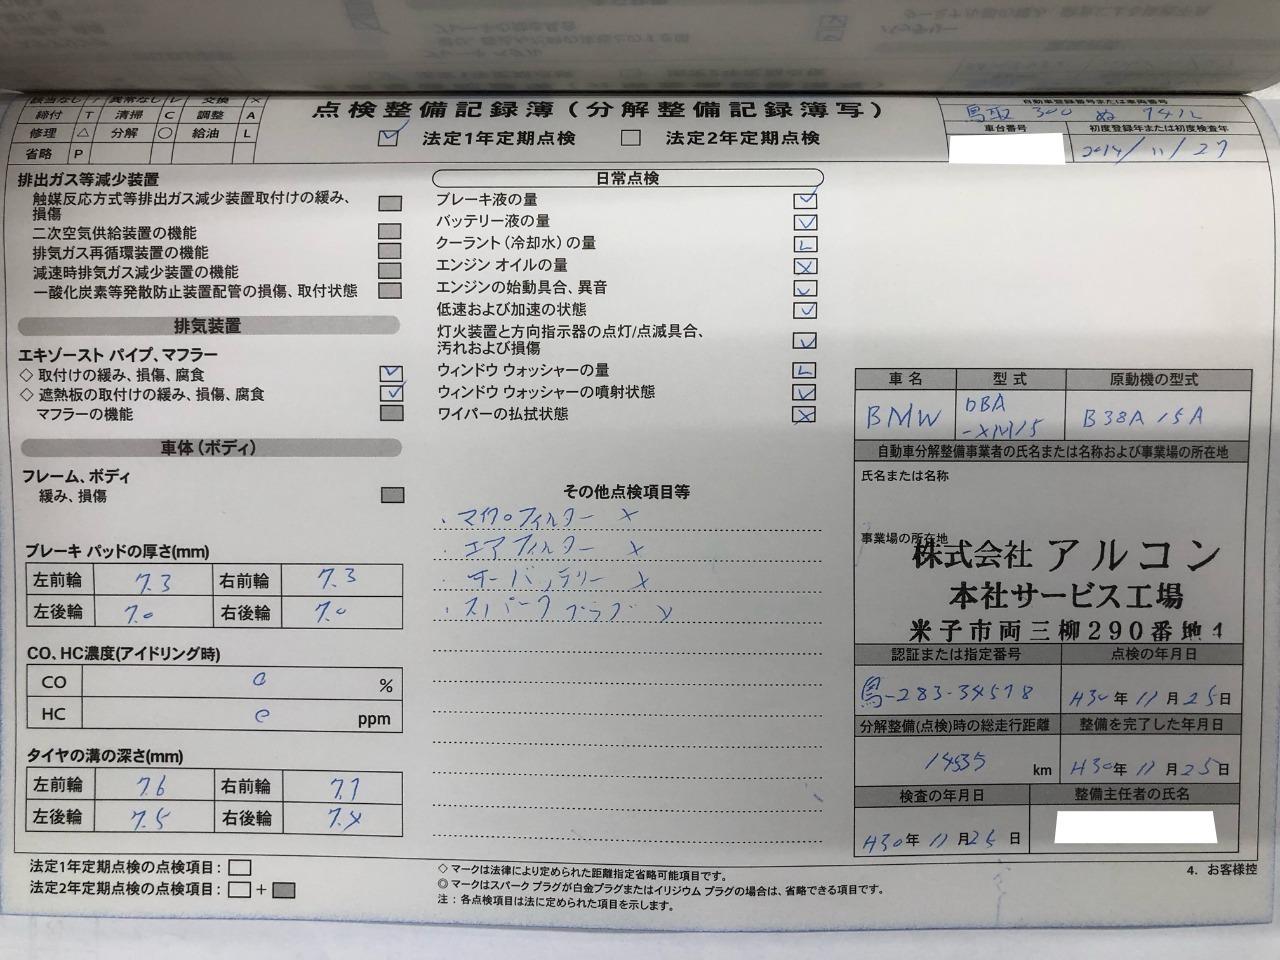 点検整備記録簿（分解整備記録簿写）
締付 T 清掃 C 調整 A
修理 △ 分解 ○ 給油 L
省略 P
法定1年定期点検 法定2年定期点検
自動車登録番号または車両番号
鳥取 300 ぬ
車台番号 初度登録年または初度検査年
2014/11/27
排出ガス等減少装置
触媒反応方式等排出ガス減少装置取付けの緩み、
損傷
二次空気供給装置の機能
排気ガス再循環装置の機能
減速時排気ガス減少装置の機能
一酸化炭素等発散防止装置配管の損傷、取付状態
排気装置
エキゾースト パイプ、マフラー
◇ 取付けの緩み、損傷、腐食
◇ 遮熱板の取付けの緩み、損傷、腐食
マフラーの機能
車体（ボディ）
フレーム、ボディ
緩み、損傷
ブレーキ パッドの厚さ(mm)
左前輪 7.3 右前輪 7.3
左後輪 7.0 右後輪 7.0
CO、HC濃度(アイドリング時)
CO 0 %
HC 0 ppm
タイヤの溝の深さ(mm)
左前輪 7.6 右前輪 7.7
左後輪 7.5 右後輪
法定1年定期点検の点検項目：
法定2年定期点検の点検項目： +
日常点検
ブレーキ液の量
バッテリー液の量
クーラント（冷却水）の量 L
エンジン オイルの量 X
エンジンの始動具合、異音
低速および加速の状態
灯火装置と方向指示器の点灯/点滅具合、
汚れおよび損傷
ウィンドウ ウォッシャーの量 L
ウィンドウ ウォッシャーの噴射状態
ワイパーの払拭状態 X
その他点検項目等
・マイクロフィルター X
・エアフィルター X
・キーバッテリー X
・スパークプラグ
◇ マークは法律により定められた距離指定省略可能項目です。
◎ マークはスパーク プラグが白金プラグまたはイリジウム プラグの場合は、省略できる項目です。
注：各点検項目は法に定められた項目を示します。
車名 型式 原動機の型式
BMW DBA B38A15A
-XM15
自動車分解整備事業者の氏名または名称および事業場の所在地
氏名または名称
事業場の所在地
株式会社 アルコン
本社サービス工場
米子市両三柳290番地1
認証または指定番号 点検の年月日
鳥-283-34578 H30年11月25日
分解整備(点検)時の総走行距離 整備を完了した年月日
14535 km H30年11月25日
検査の年月日 整備主任者の氏名
H30年11月25日
4. お客様控